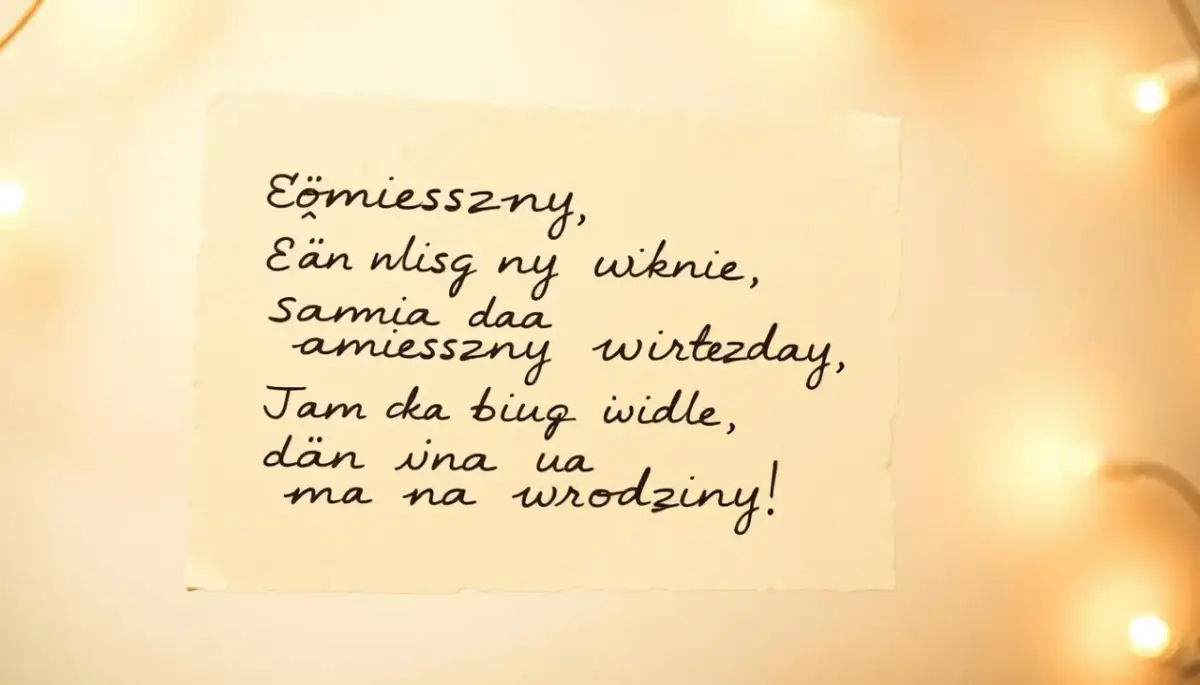 Eömiesszny,
Eän nlisg ny wiknie,
Sammia daa
amiesszny wirtezday,
Jam cka biug iwidle,
dän ina ua
ma na wrodziny!